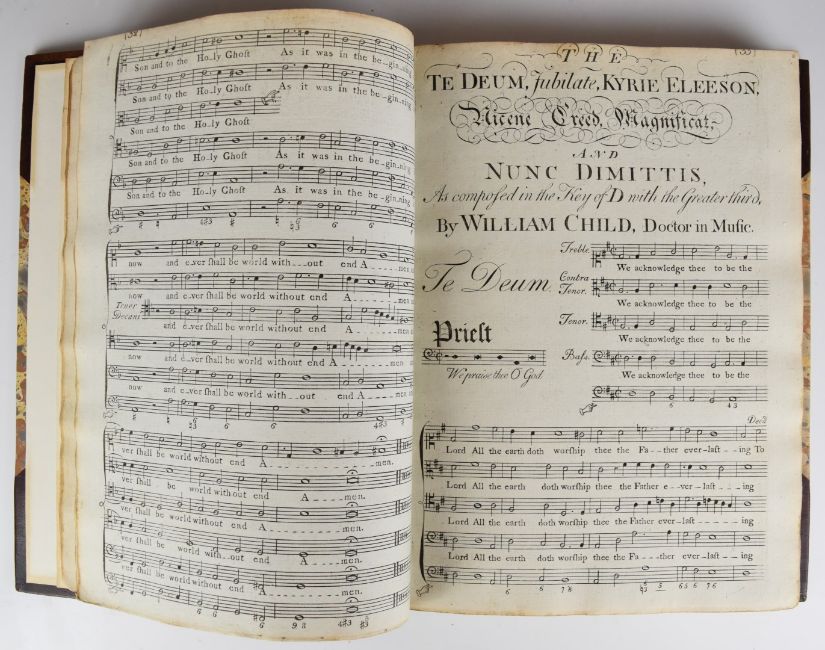 (32)
Son and to the Ho_ly Ghoſt As it was in the be_gin_ning
Son and to the Ho_ly Ghoſt As it was in the be_gin_ning
Son and to the Ho_ly Ghoſt
Son and to the Ho_ly Ghoſt As it was in the be_gin_ning
Son and to the Ho_ly Ghoſt As it was in the be_gin_ning
now and e_ver ſhall be world with__out end A____men
now and e_ver ſhall be world without end A____men
Tenor
Decani
and e_ver ſhall be world without end A____men
now and e_ver ſhall be world without end A____men
now and e_ver ſhall be world with__out end A____men
ver ſhall be world without end A____men.
ver ſhall be world without end A____men.
ver ſhall be world without end A____men.
ver ſhall be world with__out end A____men.
ver ſhall be world without end A____men.
(33)
THE
TE DEUM, Jubilate, KYRIE ELEESON,
Nicene Creed, Magnificat,
AND
NUNC DIMITTIS,
As compoſed in the Key of D with the Greater third,
By WILLIAM CHILD, Doctor in Muſic.
Te Deum.
Treble
We acknowledge thee to be the
Contra
Tenor.
We acknowledge thee to be the
Tenor.
We acknowledge thee to be the
Prieſt
We praise thee O God
Baſs.
We acknowledge thee to be the
6 43
Dec'd
Lord All the earth doth worſhip thee the Fa__ther ever_laſt__ing To
Lord All the earth doth worſhip thee the Father e_ver_laſt__ing
Lord All the earth doth worſhip thee the Father ever_laſt____ing
Lord All the earth doth worſhip thee the Fa__ther ever_laſt__ing